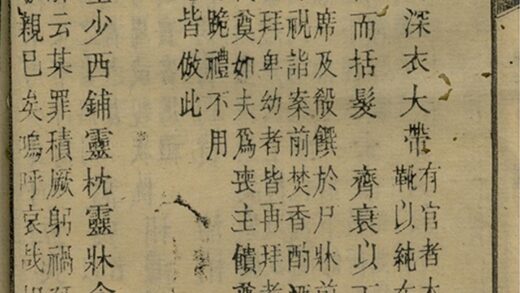 深衣大帶
有官者
靴以純
而括髮 齊衰以
席及殽饌於尸牀前
祝詣案前焚香酌酒
拜卑幼者皆再拜
奠如夫爲喪主饋奠
晚禮不用
皆倣此
少西鋪靈枕靈牀
云某罪積厥躬禍
親已矣嗚呼哀哉